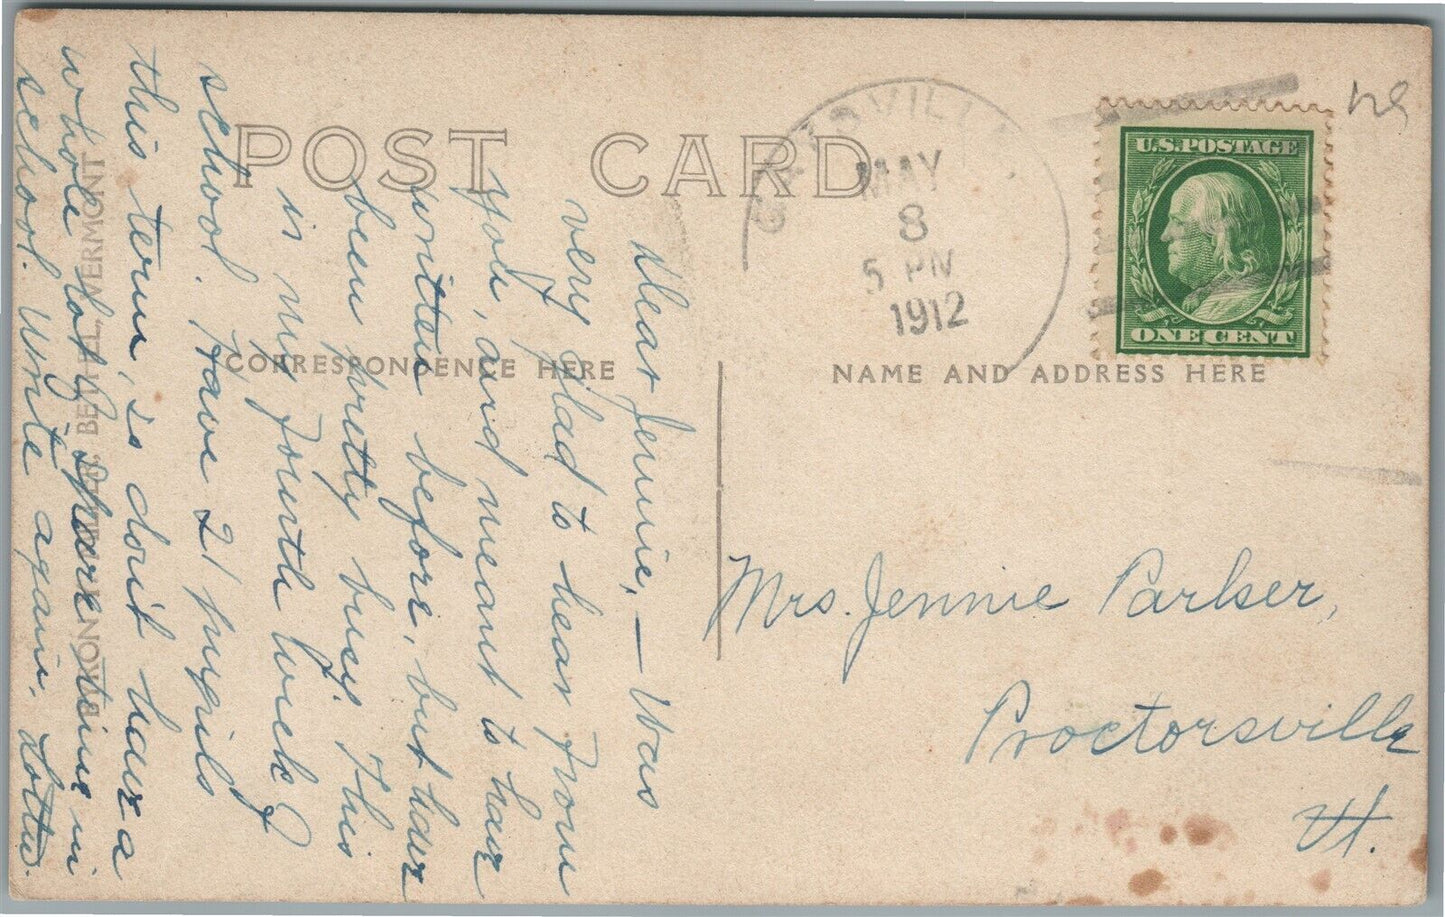 POST CARD
MAY
8
5 PM
1912
U.S. POSTAGE
ONE CENT
CORRESPONDENCE HERE
NAME AND ADDRESS HERE
Dear Jennie, — Was
very glad to hear from
you, and meant to have
written before, but have
been pretty busy. This
is my fourth week of
school. Have 21 pupils
this term, so don't have a
whole lot of spare time in
school. Write again. Lottie.
Mrs. Jennie Parker,
Proctorsville
Vt.
BETHEL, VERMONT